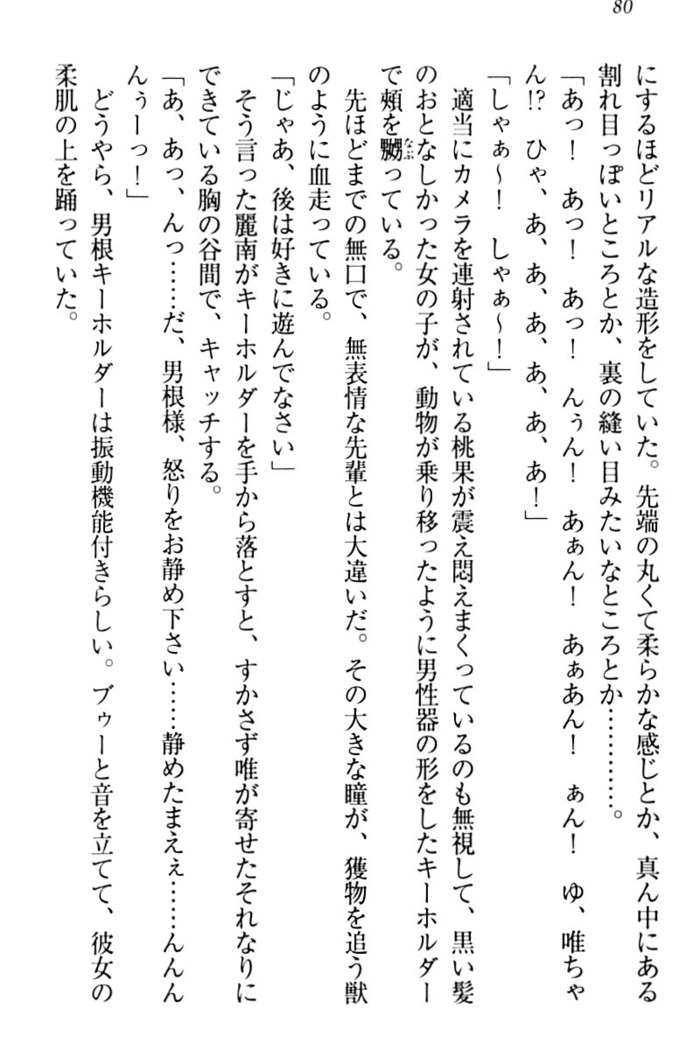 80
にするほどリアルな造形をしていた。先端の丸くて柔らかな感じとか、真ん中にある
割れ目っぽいところとか、裏の縫い目みたいなところとか…………。
「あっ！　あっ！　あっ！　んぅん！　あぁん！　あぁあん！　ぁん！　ゆ、唯ちゃ
ん!?　ひゃ、あ、あ、あ、あ、あ、あ！」
「しゃぁ～！　しゃぁ～！」
　適当にカメラを連射されている桃果が震え悶えまくっているのも無視して、黒い髪
のおとなしかった女の子が、動物が乗り移ったように男性器の形をしたキーホルダー
で頬を嬲なぶっている。
　先ほどまでの無口で、無表情な先輩とは大違いだ。その大きな瞳が、獲物を追う獣
のように血走っている。
「じゃあ、後は好きに遊んでなさい」
　そう言った麗南がキーホルダーを手から落とすと、すかさず唯が寄せたそれなりに
できている胸の谷間で、キャッチする。
「あ、あっ、んっ……だ、男根様、怒りをお静め下さい……静めたまえぇ……んんん
んぅーっ！」
　どうやら、男根キーホルダーは振動機能付きらしい。ブゥーと音を立てて、彼女の
柔肌の上を踊っていた。